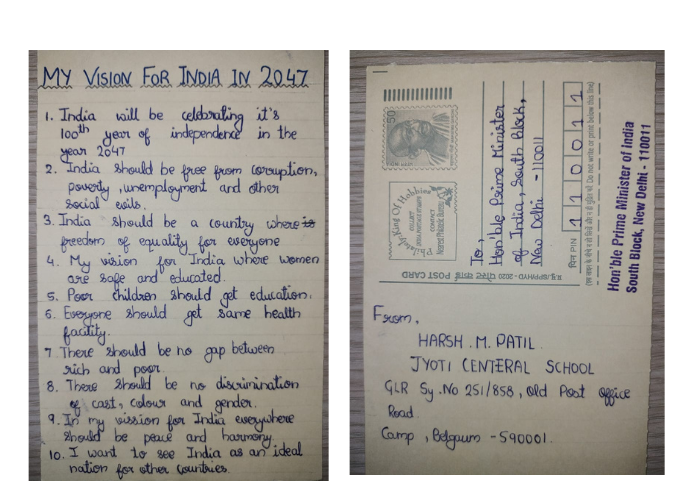 MY VISION FOR INDIA IN 2047
1. India will be celebrating it's
100th year of independence in the
year 2047
2. India should be free from corruption,
poverty, unemployment and other
social evils.
3. India should be a country where
freedom of equality for everyone
4. My vision for India where women
are safe and educated.
5. Poor children should get education.
6. Everyone should get same health
facility.
7. There should be no gap between
rich and poor.
8. There should be no discrimination
of cast, colour and gender.
9. In my vission for India everywhere
should be peace and harmony.
10. I want to see India as an ideal
nation for other Countries.
POST CARD
पोस्ट कार्ड
Philately King Of Hobbies
COLLECT
CONTACT
Nearest Philatelic Bureau
50
To,
Hon'ble Prime Minister
of India, South Block,
New Delhi - 110011
पिन PIN 110011
Do not write or print below this line
Hon'ble Prime Minister of India
South Block, New Delhi - 110011
From,
HARSH . M. PATIL
JYOTI CENTERAL SCHOOL
GLR Sy. No 251/858, Old Post office
Road.
Camp, Belgaum - 590001.